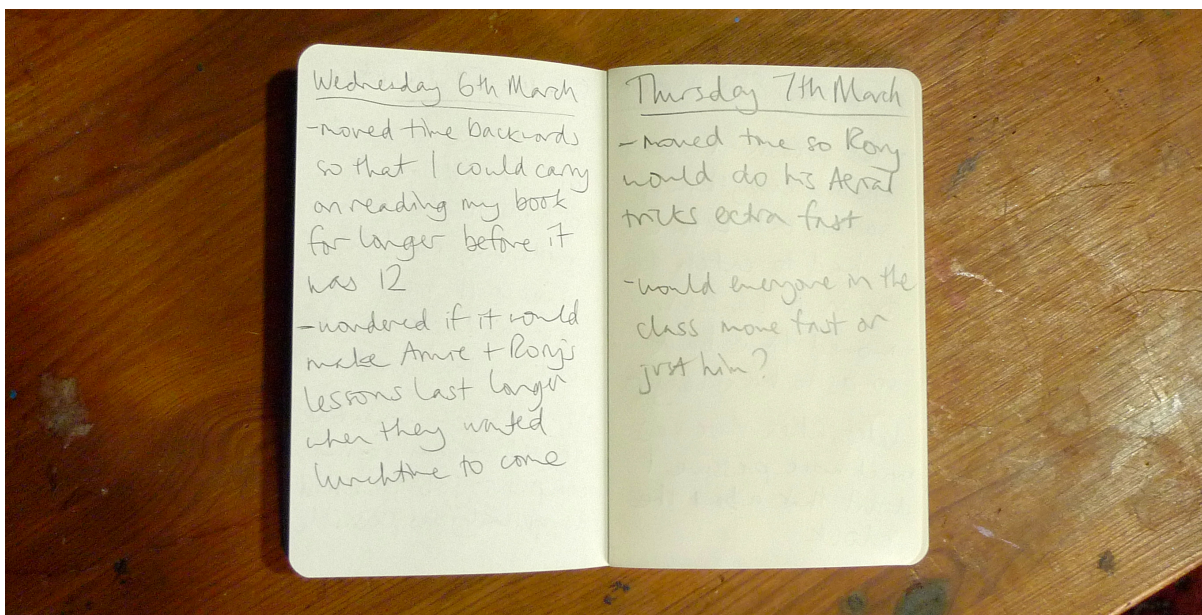 Wednesday 6th March
- moved time backwards
so that I could carry
on reading my book
for longer before it
was 12
- wondered if it would
make Annie + Rory's
lessons last longer
when they wanted
lunchtime to come
Thursday 7th March
- moved time so Rory
would do his Aerial
tricks extra fast
- would everyone in the
class move fast or
just him?